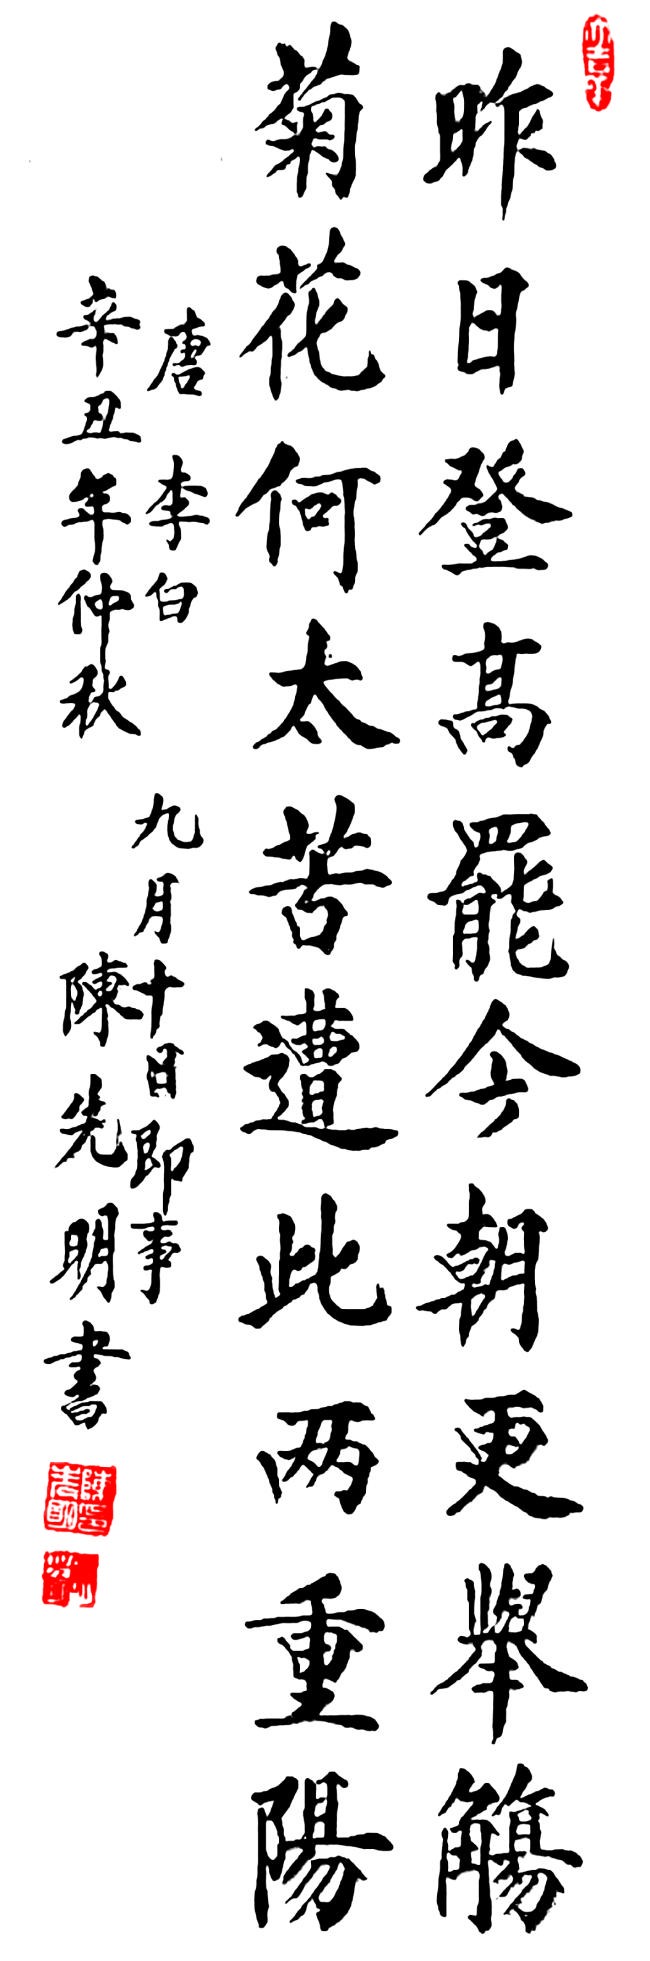 昨日登髙罷今朝更舉觴
菊花何太苦遭此两重陽
唐 李白 九月十日即事
辛丑年仲秋 陳先明書